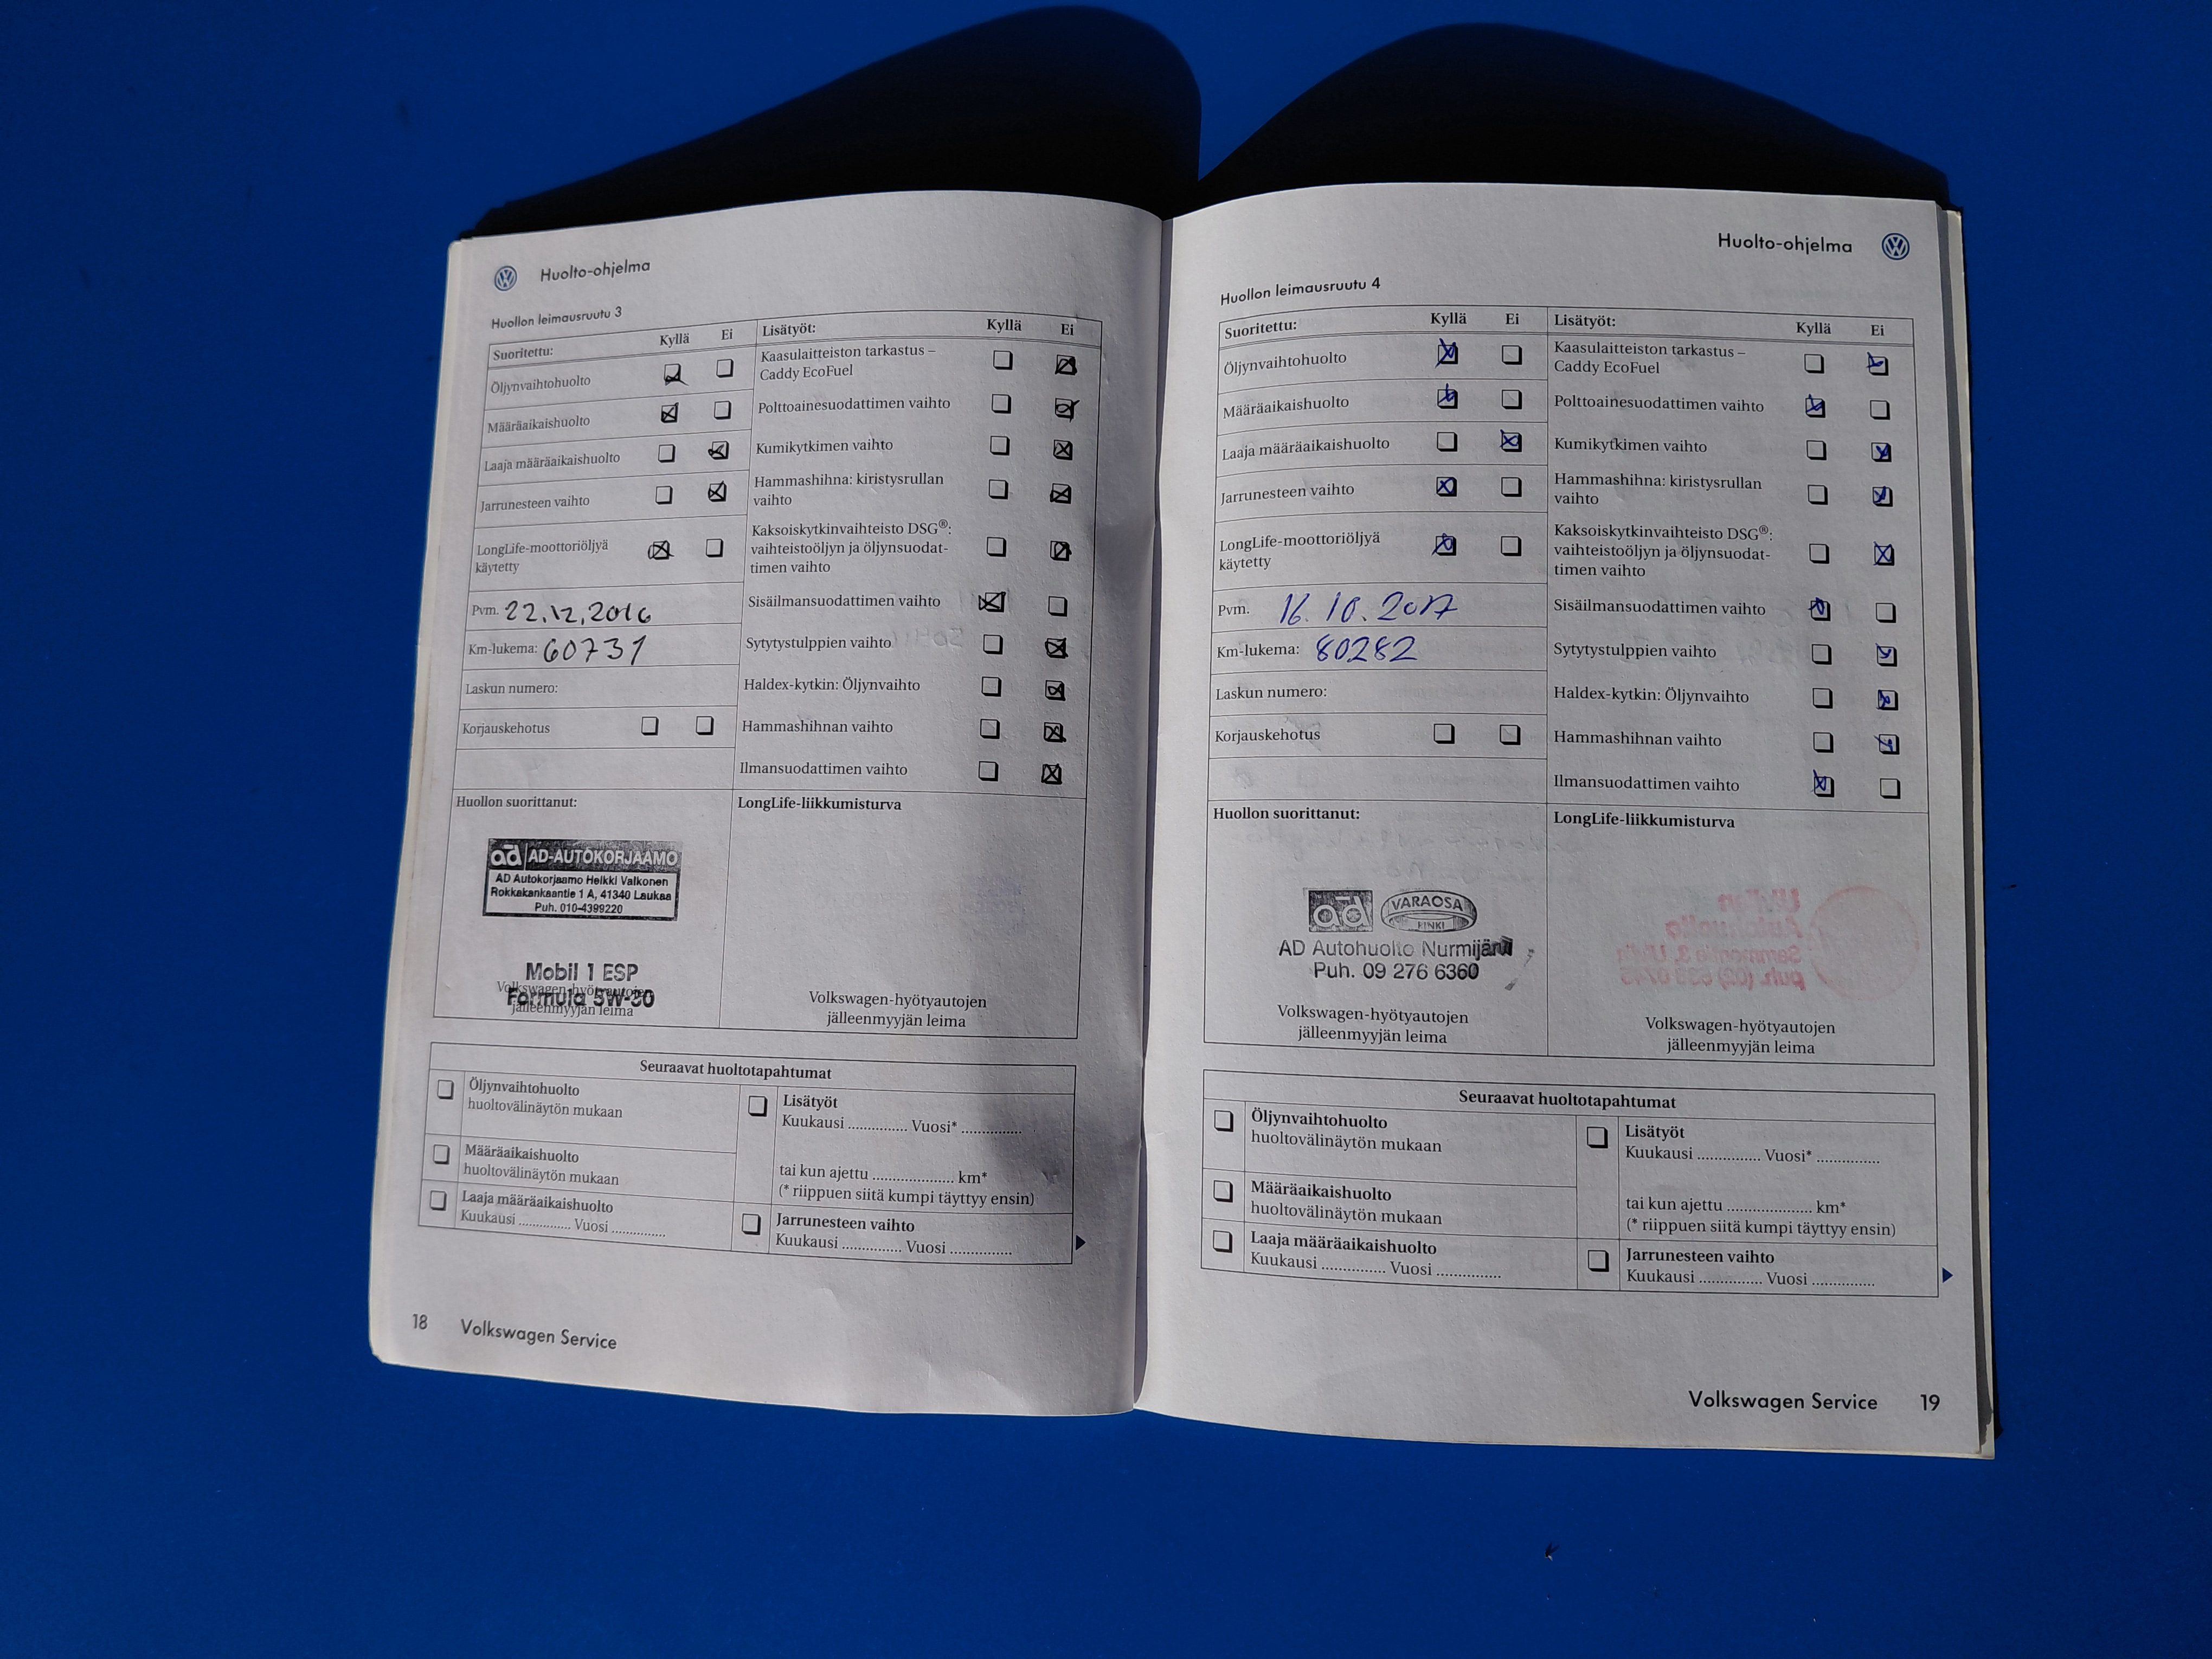 Huolto-ohjelma
Huollon leimausruutu 3
Suoritettu: Kyllä Ei
Öljynvaihtohuolto
Määräaikaishuolto
Laaja määräaikaishuolto
Jarrunesteen vaihto
LongLife-moottoriöljyä
käytetty
Pvm. 22.12.2016
Km-lukema: 60731
Laskun numero:
Korjauskehotus
Lisätyöt: Kyllä Ei
Kaasulaitteiston tarkastus –
Caddy EcoFuel
Polttoainesuodattimen vaihto
Kumikytkimen vaihto
Hammashihna: kiristysrullan
vaihto
Kaksoiskytkinvaihteisto DSG®:
vaihteistoöljyn ja öljynsuodat-
timen vaihto
Sisäilmansuodattimen vaihto
Sytytystulppien vaihto
Haldex-kytkin: Öljynvaihto
Hammashihnan vaihto
Ilmansuodattimen vaihto
Huollon suorittanut:
ad AD-AUTOKORJAAMO
AD Autokorjaamo Heikki Valkonen
Rokkakankaantie 1 A, 41340 Laukaa
Puh. 010-4399220
Mobil 1 ESP
Volkswagen-hyötyautojen
Formula 5W-30
jälleenmyyjän leima
LongLife-liikkumisturva
Volkswagen-hyötyautojen
jälleenmyyjän leima
Seuraavat huoltotapahtumat
Öljynvaihtohuolto
huoltovälinäytön mukaan
Määräaikaishuolto
huoltovälinäytön mukaan
Laaja määräaikaishuolto
Kuukausi .............. Vuosi ..............
Lisätyöt
Kuukausi .............. Vuosi* ..............
tai kun ajettu .................... km*
(* riippuen siitä kumpi täyttyy ensin)
Jarrunesteen vaihto
Kuukausi .............. Vuosi ..............
18 Volkswagen Service
Huolto-ohjelma
Huollon leimausruutu 4
Suoritettu: Kyllä Ei
Öljynvaihtohuolto
Määräaikaishuolto
Laaja määräaikaishuolto
Jarrunesteen vaihto
LongLife-moottoriöljyä
käytetty
Pvm. 16.10.2017
Km-lukema: 80282
Laskun numero:
Korjauskehotus
Lisätyöt: Kyllä Ei
Kaasulaitteiston tarkastus –
Caddy EcoFuel
Polttoainesuodattimen vaihto
Kumikytkimen vaihto
Hammashihna: kiristysrullan
vaihto
Kaksoiskytkinvaihteisto DSG®:
vaihteistoöljyn ja öljynsuodat-
timen vaihto
Sisäilmansuodattimen vaihto
Sytytystulppien vaihto
Haldex-kytkin: Öljynvaihto
Hammashihnan vaihto
Ilmansuodattimen vaihto
Huollon suorittanut:
ad VARAOSA
FINKI
AD Autohuolto Nurmijärvi
Puh. 09 276 6360
Volkswagen-hyötyautojen
jälleenmyyjän leima
LongLife-liikkumisturva
Volkswagen-hyötyautojen
jälleenmyyjän leima
Seuraavat huoltotapahtumat
Öljynvaihtohuolto
huoltovälinäytön mukaan
Määräaikaishuolto
huoltovälinäytön mukaan
Laaja määräaikaishuolto
Kuukausi .............. Vuosi ..............
Lisätyöt
Kuukausi .............. Vuosi* ..............
tai kun ajettu .................... km*
(* riippuen siitä kumpi täyttyy ensin)
Jarrunesteen vaihto
Kuukausi .............. Vuosi ..............
Volkswagen Service 19